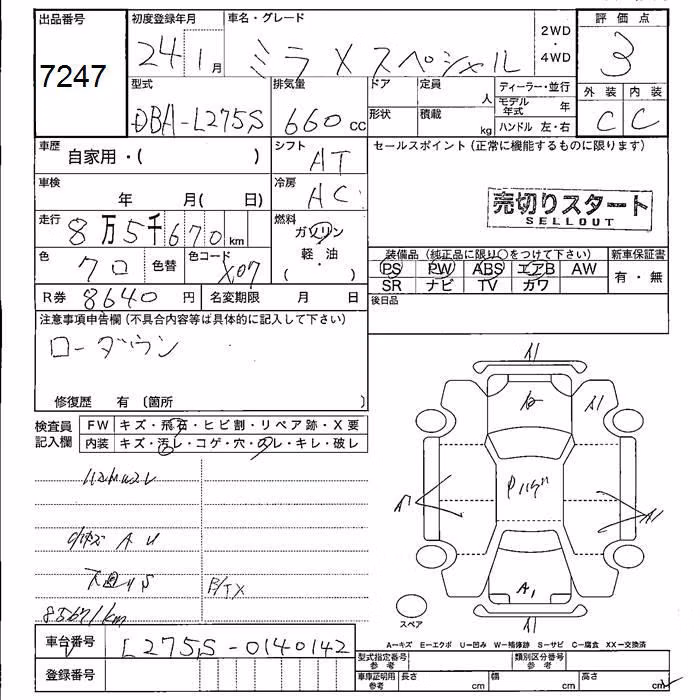 出品番号
7247
初度登録年月
24 1 月
車名・グレード
ミラ X スペシャル
2WD
・
4WD
評価点
3
外装 内装
C C
型式
DBA-L275S
排気量
660 cc
ドア
定員
人
ディーラー・並行
モデル年式 年
形状
積載
kg
ハンドル 左・右
車歴
自家用・( )
シフト
AT
車検
年 月( 日)
冷房
AC
走行
8万5千670 km
燃料
ガソリン
軽・油
( )
色
クロ
色替
色コード
X07
R券 8640 円
名変期限 月 日
セールスポイント(正常に機能するものに限ります)
売切りスタート
SELLOUT
装備品(純正品に限り○をつけて下さい)
新車保証書
PS PW ABS エアB AW
有・無
SR ナビ TV カワ
後日品
注意事項申告欄(不具合内容等は具体的に記入して下さい)
ローダウン
修復歴 有(箇所 )
検査員記入欄
FW キズ・飛石・ヒビ割・リペア跡・X要
内装 キズ・汚レ・コゲ・穴・スレ・キレ・破レ
A U
85671km
A1
A1
A1
A1
スペア
A1
A=キズ E=エクボ U=凹み W=補修跡 S=サビ C=腐食 XX=交換済
車台番号
L275S-0140142
登録番号
型式指定番号 参考
類別区分番号 参考
車庫証明用 参考
長さ cm
幅 cm
高さ cm